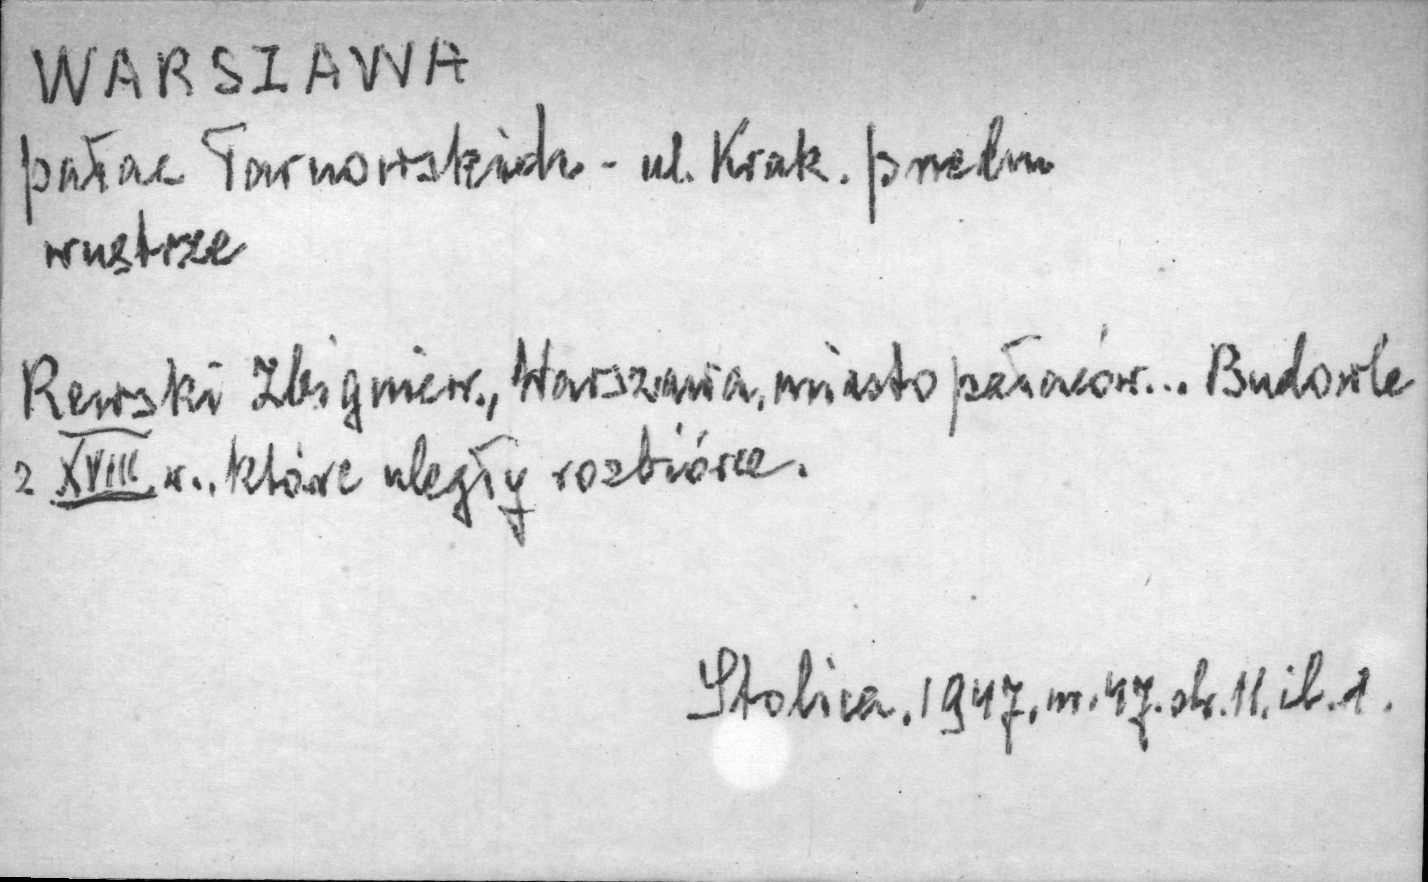 WARSZAWA
pałac Tarnowskich - ul. Krak. przedm
wnętrze
Rewski Zbigniew., Warszawa, miasto pałaców... Budowle
z XVIII w., które uległy rozbiórce.
Stolica, 1947, nr. 47. str. 11. il. 1.